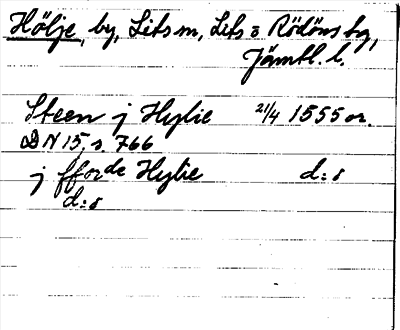 Hölje, by, Lits sn, Lits o Rödöns tg,
Jämtl. l.
Steen j Hylie 21/4 1555 or.
DN 15, s. 766
j fforde Hylie d:o
d:o